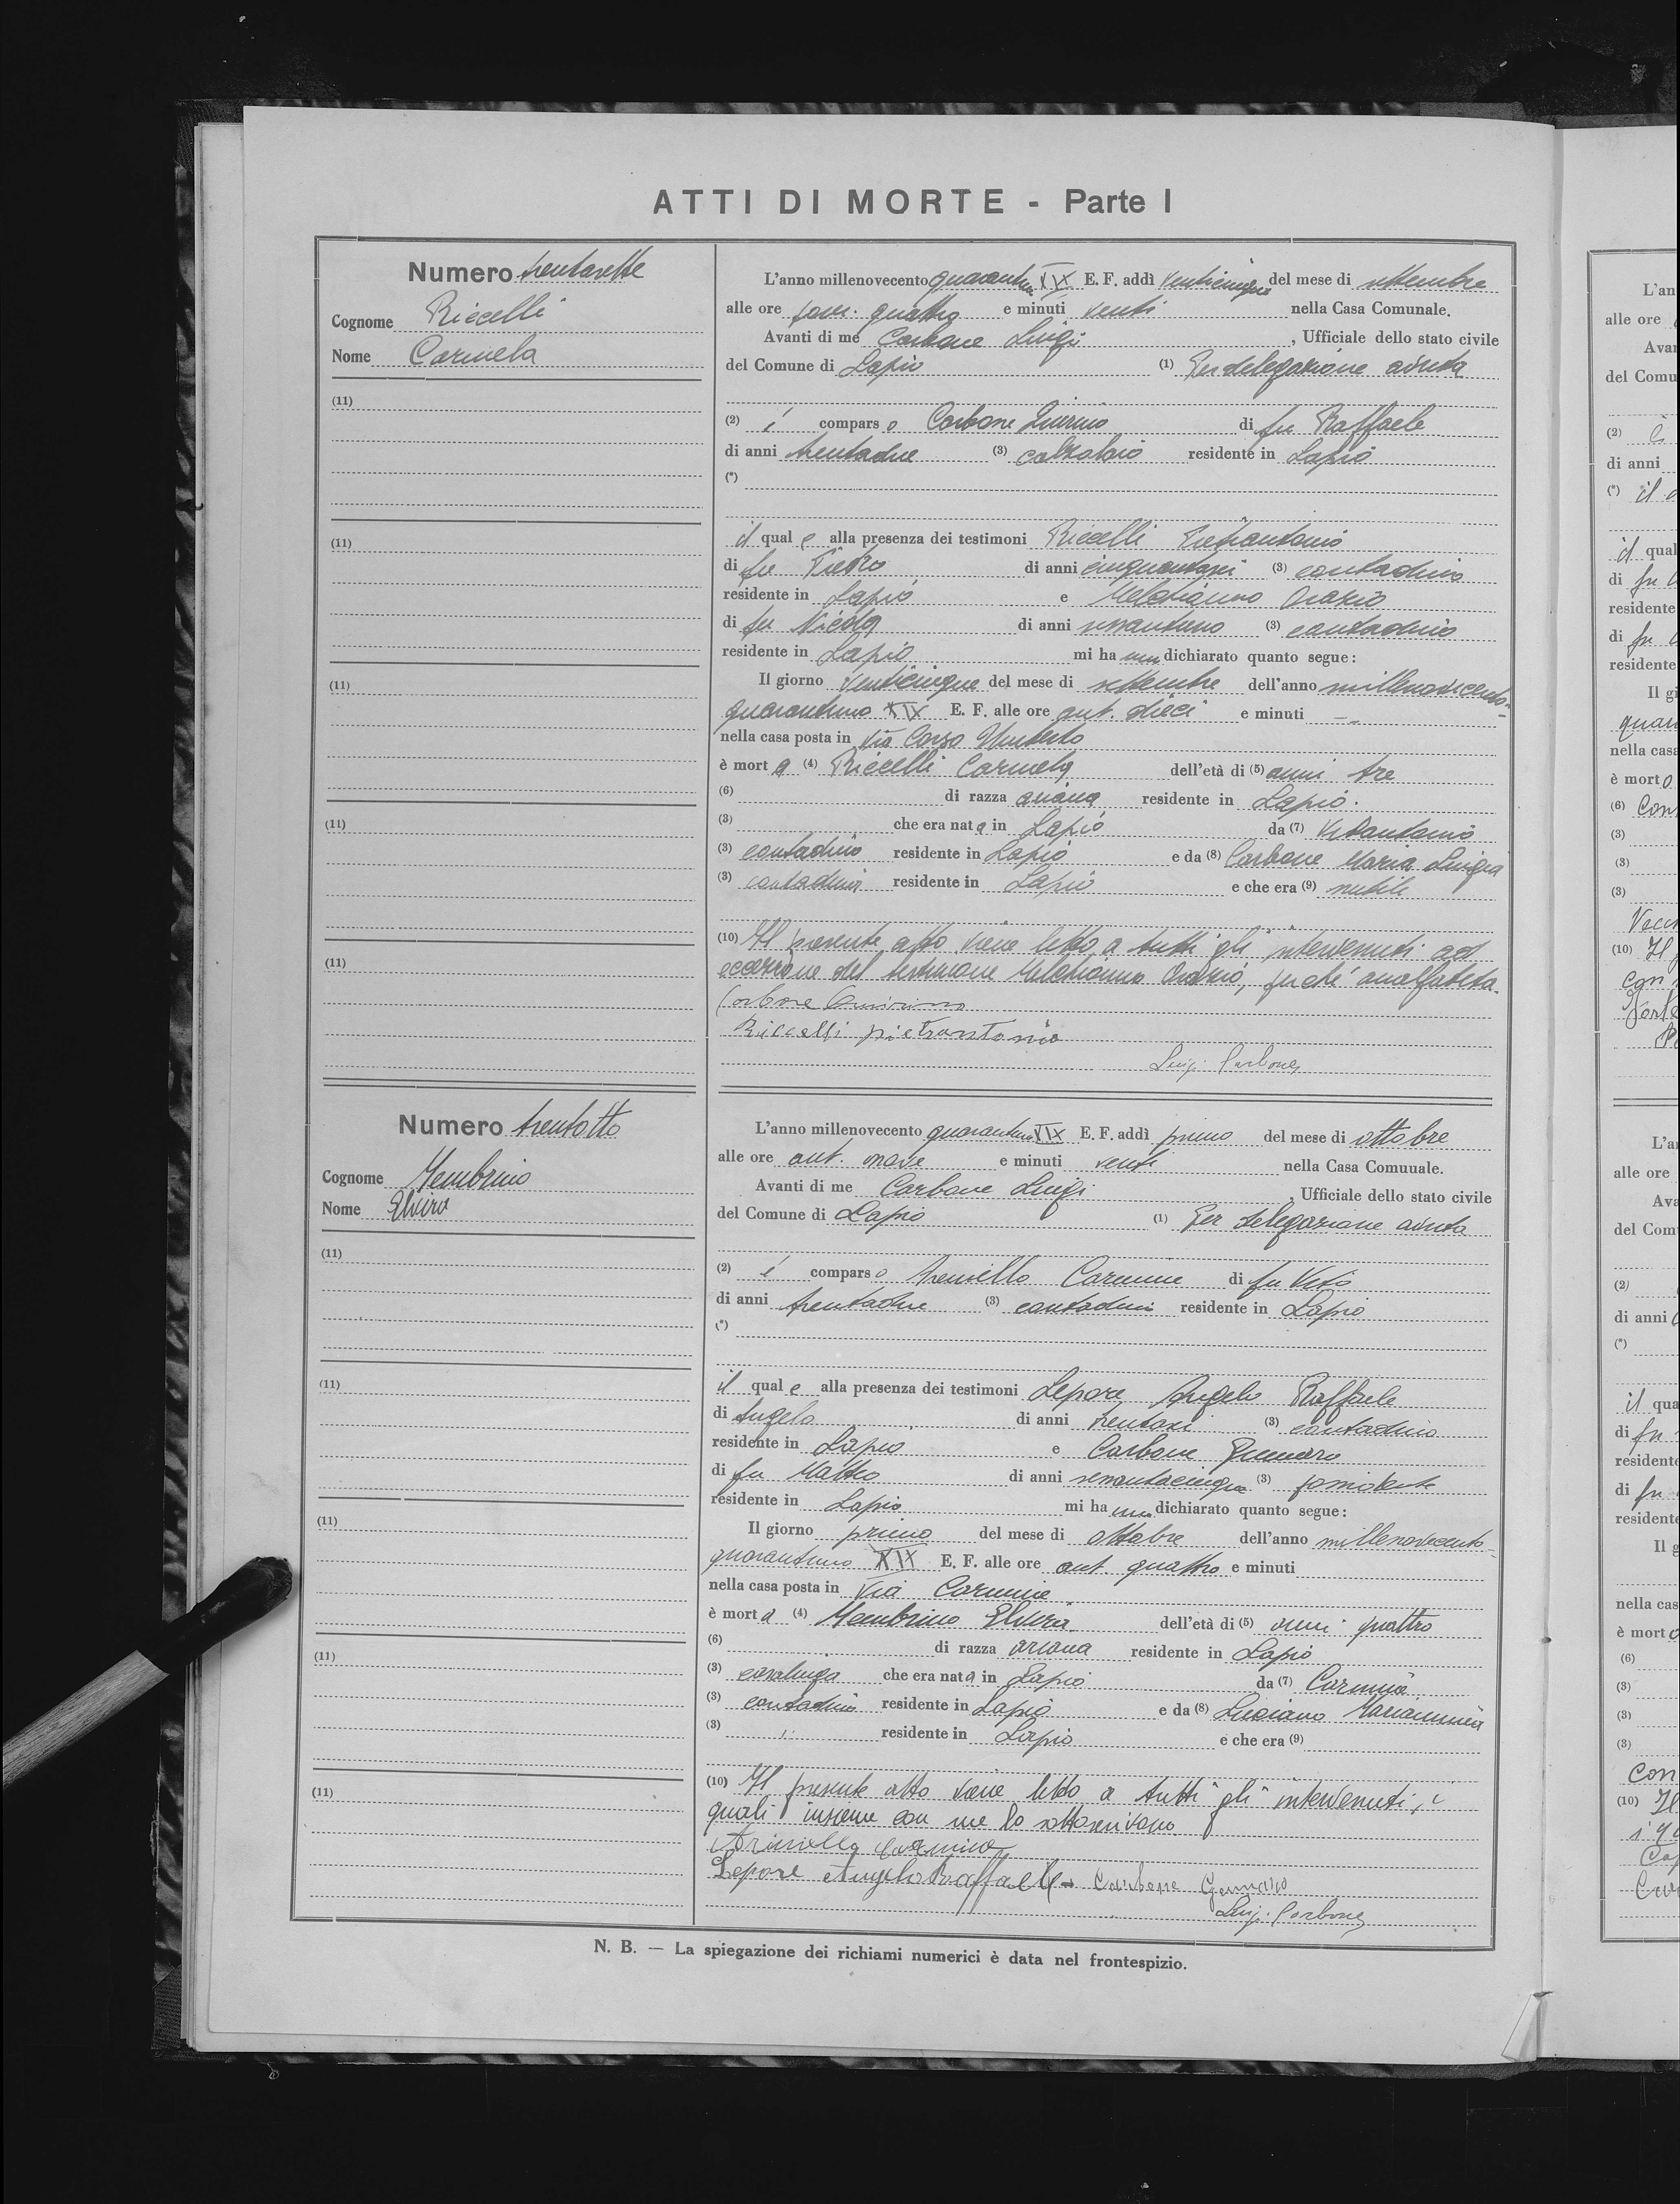 ATTI DI MORTE - Parte I
Numero trentasette
Cognome Riccelli
Nome Carmela
(11)
(11)
(11)
(11)
(11)
L'anno millenovecento quarantuno XIX E. F. addì venticinque del mese di settembre
alle ore pom. quattro e minuti venti nella Casa Comunale.
Avanti di me Carbone Luigi , Ufficiale dello stato civile
del Comune di Lapio (1) Per delegazione avuta
(2) è comparso Carbone Quirino di fu Raffaele
di anni trentadue (3) calzolaio residente in Lapio
(*)
il quale alla presenza dei testimoni Riccelli Pietrantonio
di fu Pietro di anni cinquantasei (3) contadino
residente in Lapio e Melchionno Orazio
di fu Nicola di anni sessantuno (3) contadino
residente in Lapio mi ha dichiarato quanto segue:
Il giorno venticinque del mese di settembre dell'anno millenovecento-
quarantuno XIX E. F. alle ore ant. dieci e minuti --
nella casa posta in Via Corso Umberto
è morta (4) Riccelli Carmela dell'età di (5) anni tre
(6) di razza ariana residente in Lapio.
(3) che era nata in Lapio da (7) Vitantonio
(3) contadino residente in Lapio e da (8) Carbone Maria Luigia
(3) contadina residente in Lapio e che era (9) nubile
(10) Il presente atto viene letto a tutti gli intervenuti ad
eccezione del testimone Melchionno Orazio, perché analfabeta.
Carbone Quirino
Riccelli pietrantonio
Luigi Carbone
Numero trentotto
Cognome Membrino
Nome Elvira
(11)
(11)
(11)
(11)
(11)
L'anno millenovecento quarantuno XIX E. F. addì primo del mese di ottobre
alle ore ant. nove e minuti venti nella Casa Comuuale.
Avanti di me Carbone Luigi , Ufficiale dello stato civile
del Comune di Lapio (1) Per delegazione avuta
(2) è comparso Carmine di fu Vito
di anni trentadue (3) contadino residente in Lapio
(*)
il quale alla presenza dei testimoni Lepore Angelo Raffaele
di Angelo di anni trentasei (3) contadino
residente in Lapio e Carbone Gennaro
di fu Matteo di anni sessantacinque (3)
residente in Lapio mi ha dichiarato quanto segue:
Il giorno primo del mese di ottobre dell'anno millenovecento-
quarantuno XIX E. F. alle ore ant quattro e minuti
nella casa posta in Via Carmine
è morta (4) Membrino Elvira dell'età di (5) anni quattro
(6) di razza ariana residente in Lapio
(3) casalinga che era nata in Lapio da (7) Carmine
(3) contadino residente in Lapio e da (8) Luciano
(3) residente in Lapio e che era (9)
(10) Il presente atto viene letto a tutti gli intervenuti, i
quali insieme con me lo sottoscrivono
Lepore Angelo Raffaele - Carbone Gennaro
Luigi Carbone
N. B. — La spiegazione dei richiami numerici è data nel frontespizio.